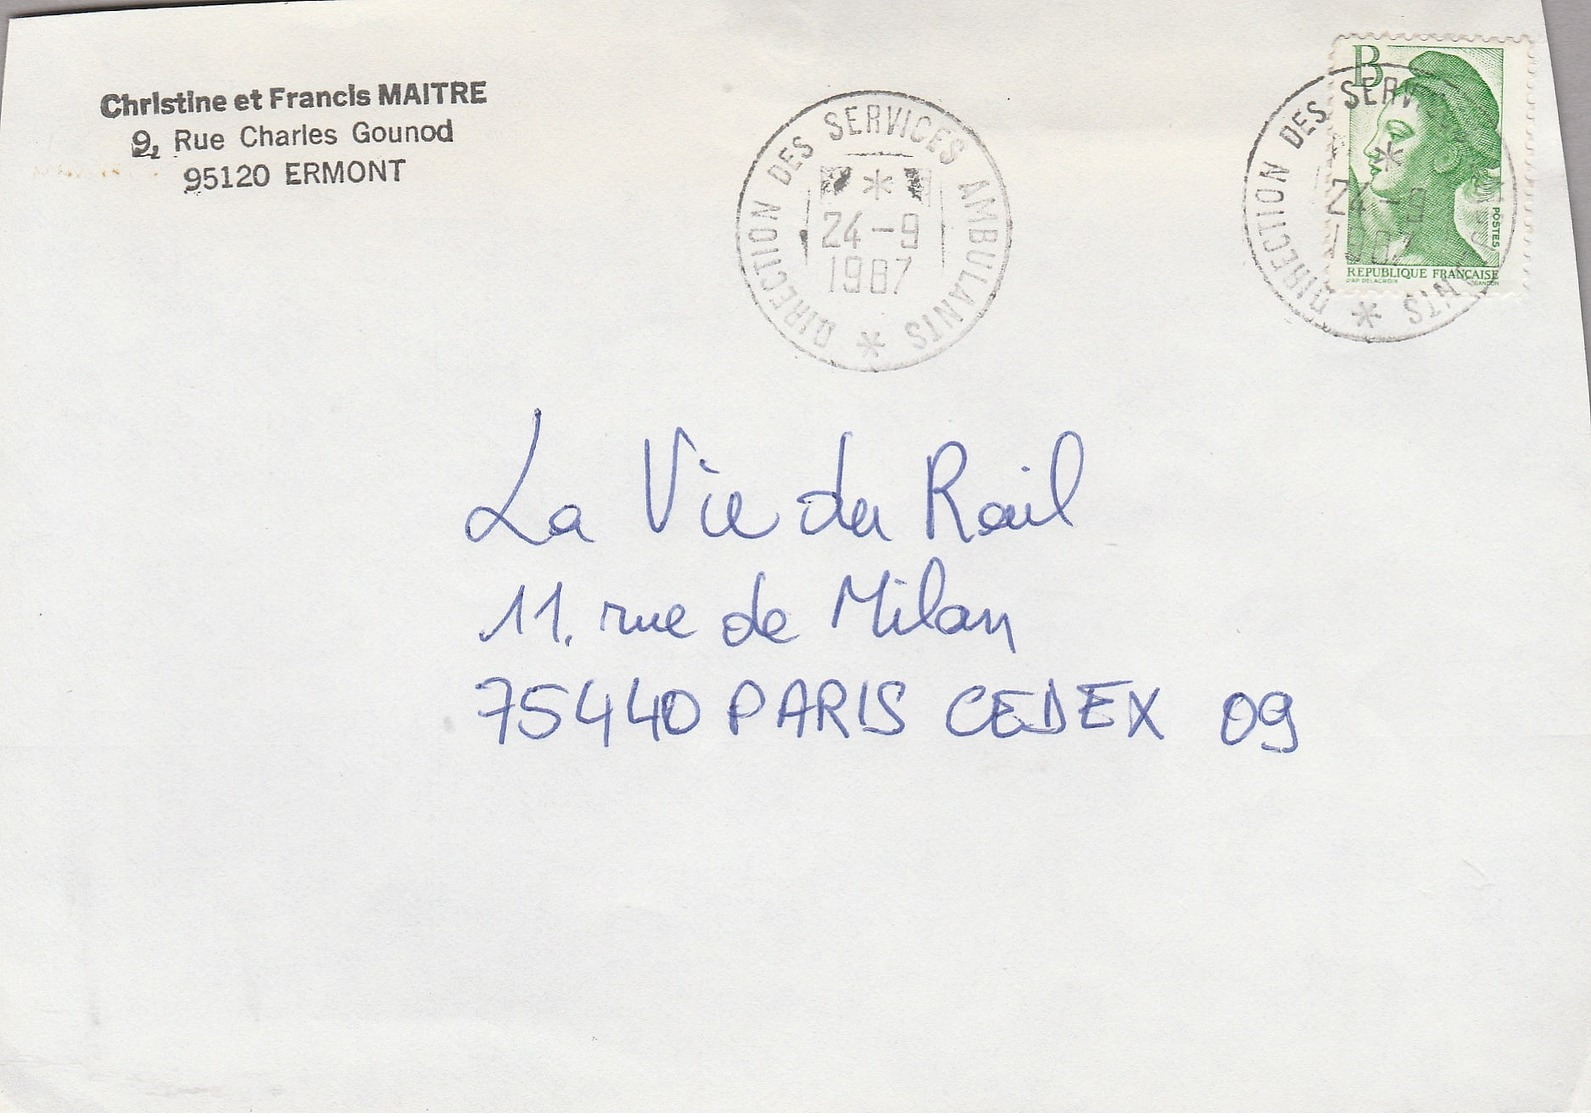 Christine et Francis MAITRE
9, Rue Charles Gounod
95120 ERMONT
DIRECTION DES SERVICES AMBULANTS
24-9
1987
B
DIRECTION DES SERV NTS
24-9
1987
POSTES
REPUBLIQUE FRANÇAISE
D'AP. DELACROIX GANDON
La Vie du Rail
11, rue de Milan
75440 PARIS CEDEX 09